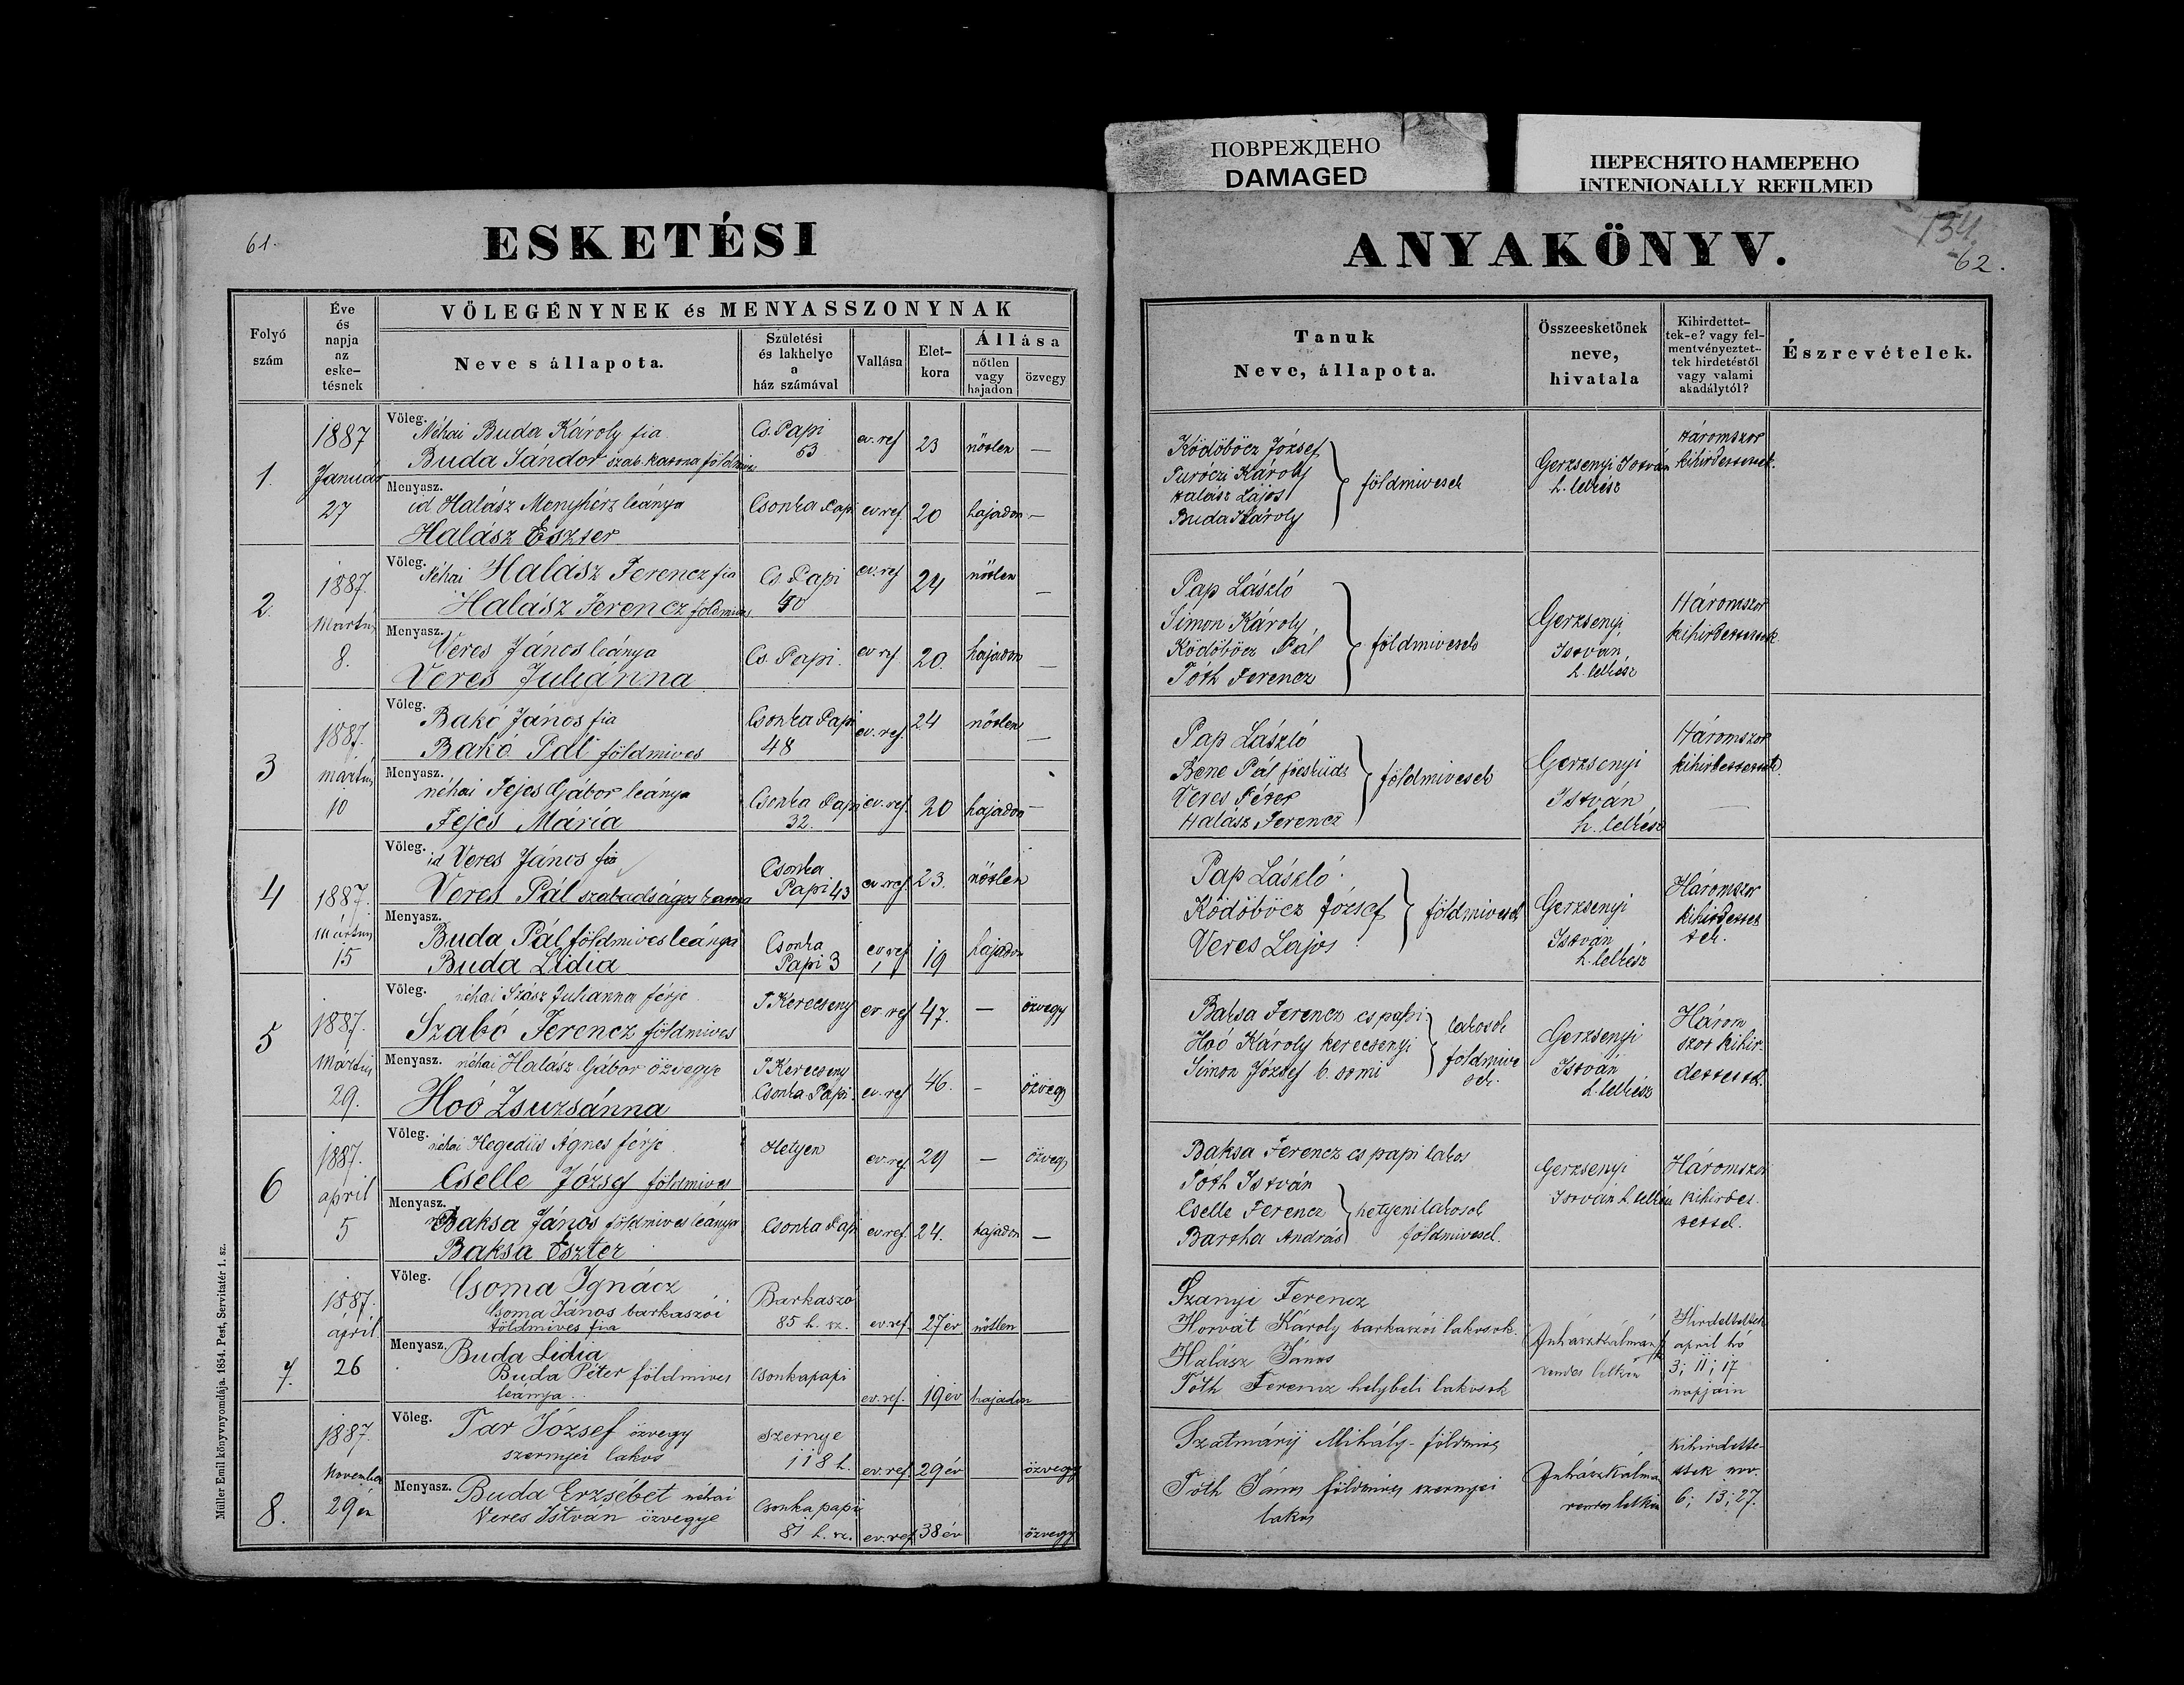 ПОВРЕЖДЕНО
DAMAGED
ПЕРЕСНЯТО НАМЕРЕНО
INTENIONALLY REFILMED
61.
ESKETÉSI
Folyó szám
Éve és napja az eske-tésnek
VÖLEGÉNYNEK és MENYASSZONYNAK
Neve s állapota.
Születési és lakhelye a ház számával
Vallása
Élet-kora
Állása
nőtlen vagy hajadon
özvegy
1.
1887 Január 27
Völeg. Néhai Buda Károly fia
Buda Sándor szab. katona földmives
Cs. Papi 53
ev. ref
23
nőtlen
—
Menyasz. id Halász Menyhért leánya
Halász Eszter
Csonka Papi
ev ref.
20
hajadon
—
2.
1887. Martius 8.
Völeg. Néhai Halász Ferencz fia
Halász Ferencz földmives
Cs. Papi
ev. ref
24
nőtlen
—
Menyasz. Veres János leánya
Veres Juliánna
Cs. Papi.
ev ref.
20.
hajadon
—
3
1887. mártius 10
Völeg. Bakó János fia
Bakó Pál földmives
Csonka Papi 48
ev. ref.
24
nőtlen
—
Menyasz. néhai Fejes Gábor leánya
Fejes Mária
Csonka Papi 32.
ev. ref.
20
hajadon
—
4
1887. mártius 15
Völeg. id Veres János fia
Veres Pál szabadságos katona
Csonka Papi 43
ev ref
23.
nőtlen
Menyasz. Buda Pál földmives leánya
Buda Lidia
Csonka Papi 3
ev. ref
19
hajadon
5
1887. Mártius 29.
Völeg. néhai Szász Juhanna férje
Szabó Ferencz földmives
T Kerecseny
ev. ref
47.
—
özvegy
Menyasz. néhai Halász Gábor özvegye
Hoó Zsuzsánna
T Kerecseny
Csonka-Papi.
ev. ref
46.
—
özvegy
6
1887. april 5
Völeg. néhai Hegedüs Ágnes férje
Cselle József földmives
Hetyen
ev. ref.
29
—
özvegy
Menyasz. Baksa János földmives leánya
Baksa Eszter
Csonka Papi
ev. ref.
24.
hajadon
—
7.
1887. ápril 26
Völeg. Csoma Ignácz
Csoma János barkaszói
földmives fia
Barkaszó
85 h. sz.
ev. ref.
27 év
nőtlen
Menyasz. Buda Lidia
Buda Péter földmives
leánya
Csonkapapi
ev. ref.
19 év
hajadon
8.
1887. November 29 én
Völeg. Tar József özvegy
szernyei lakos
Szernye
118 h.
ev. ref.
29 év
özvegy
Menyasz. Buda Erzsébet néhai
Veres István özvegye
Csonka papi
81 h. sz.
ev. ref.
38 év
özvegy
Müller Emil könyvnyomdája. 1854. Pest, Servitatér 1. sz.
134.
62.
ANYAKÖNYV.
Tanuk
Neve, állapota.
Összeesketőnek neve, hivatala
Kihirdettet-tek-e? vagy fel-mentvényeztet-tek hirdetéstől vagy valami akadálytól?
Észrevételek.
Ködöböcz József
Turóczi Károly
Halász Lajos
Buda Károly
földmivesek
Gerzsenyi István
h. lelkész
Háromszor
kihirdettettek.
Pap László
Simon Károly
Ködöböcz Pál
Tóth Ferencz
földmivesek
Gerzsenyi
István
h. lelkész
Háromszor
kihirdettettek.
Pap László
Bene Pál
Veres Péter
Halász Ferencz
földmivesek
Gerzsenyi
István
h. lelkész
Háromszor
kihirdettettek.
Pap László
Ködöböcz József
Veres Lajos
földmivesek
Gerzsenyi
István
h. lelkész
Háromszor
kihirdettet
tek.
Baksa Ferencz cs papi
Hoó Károly kerecsenyi
Simon József
lakosok
földmive
sek.
Gerzsenyi
István
h. lelkész
Három
szor kihir-
dettettek.
Baksa Ferencz cs papi lakos
Tóth István
Cselle Ferencz
Bartha András
hetyeni lakosok
földmivesek.
Gerzsenyi
István h. lelkész
Háromszor
kihirdet-
tettek.
Szanyi Ferencz
Horvát Károly barkaszói lakosok.
Halász János
Tóth Ferencz helybeli lakosok
Juhász Kálmán
rendes lelkész
Hirdettettek
april hó
3; 11; 17
napjain
Szatmáry Mihály földmives
Tóth János földmives szernyei
lakos
Juhász Kálmán
rendes lelkész
kihirdette-
ttek nov.
6; 13; 27.